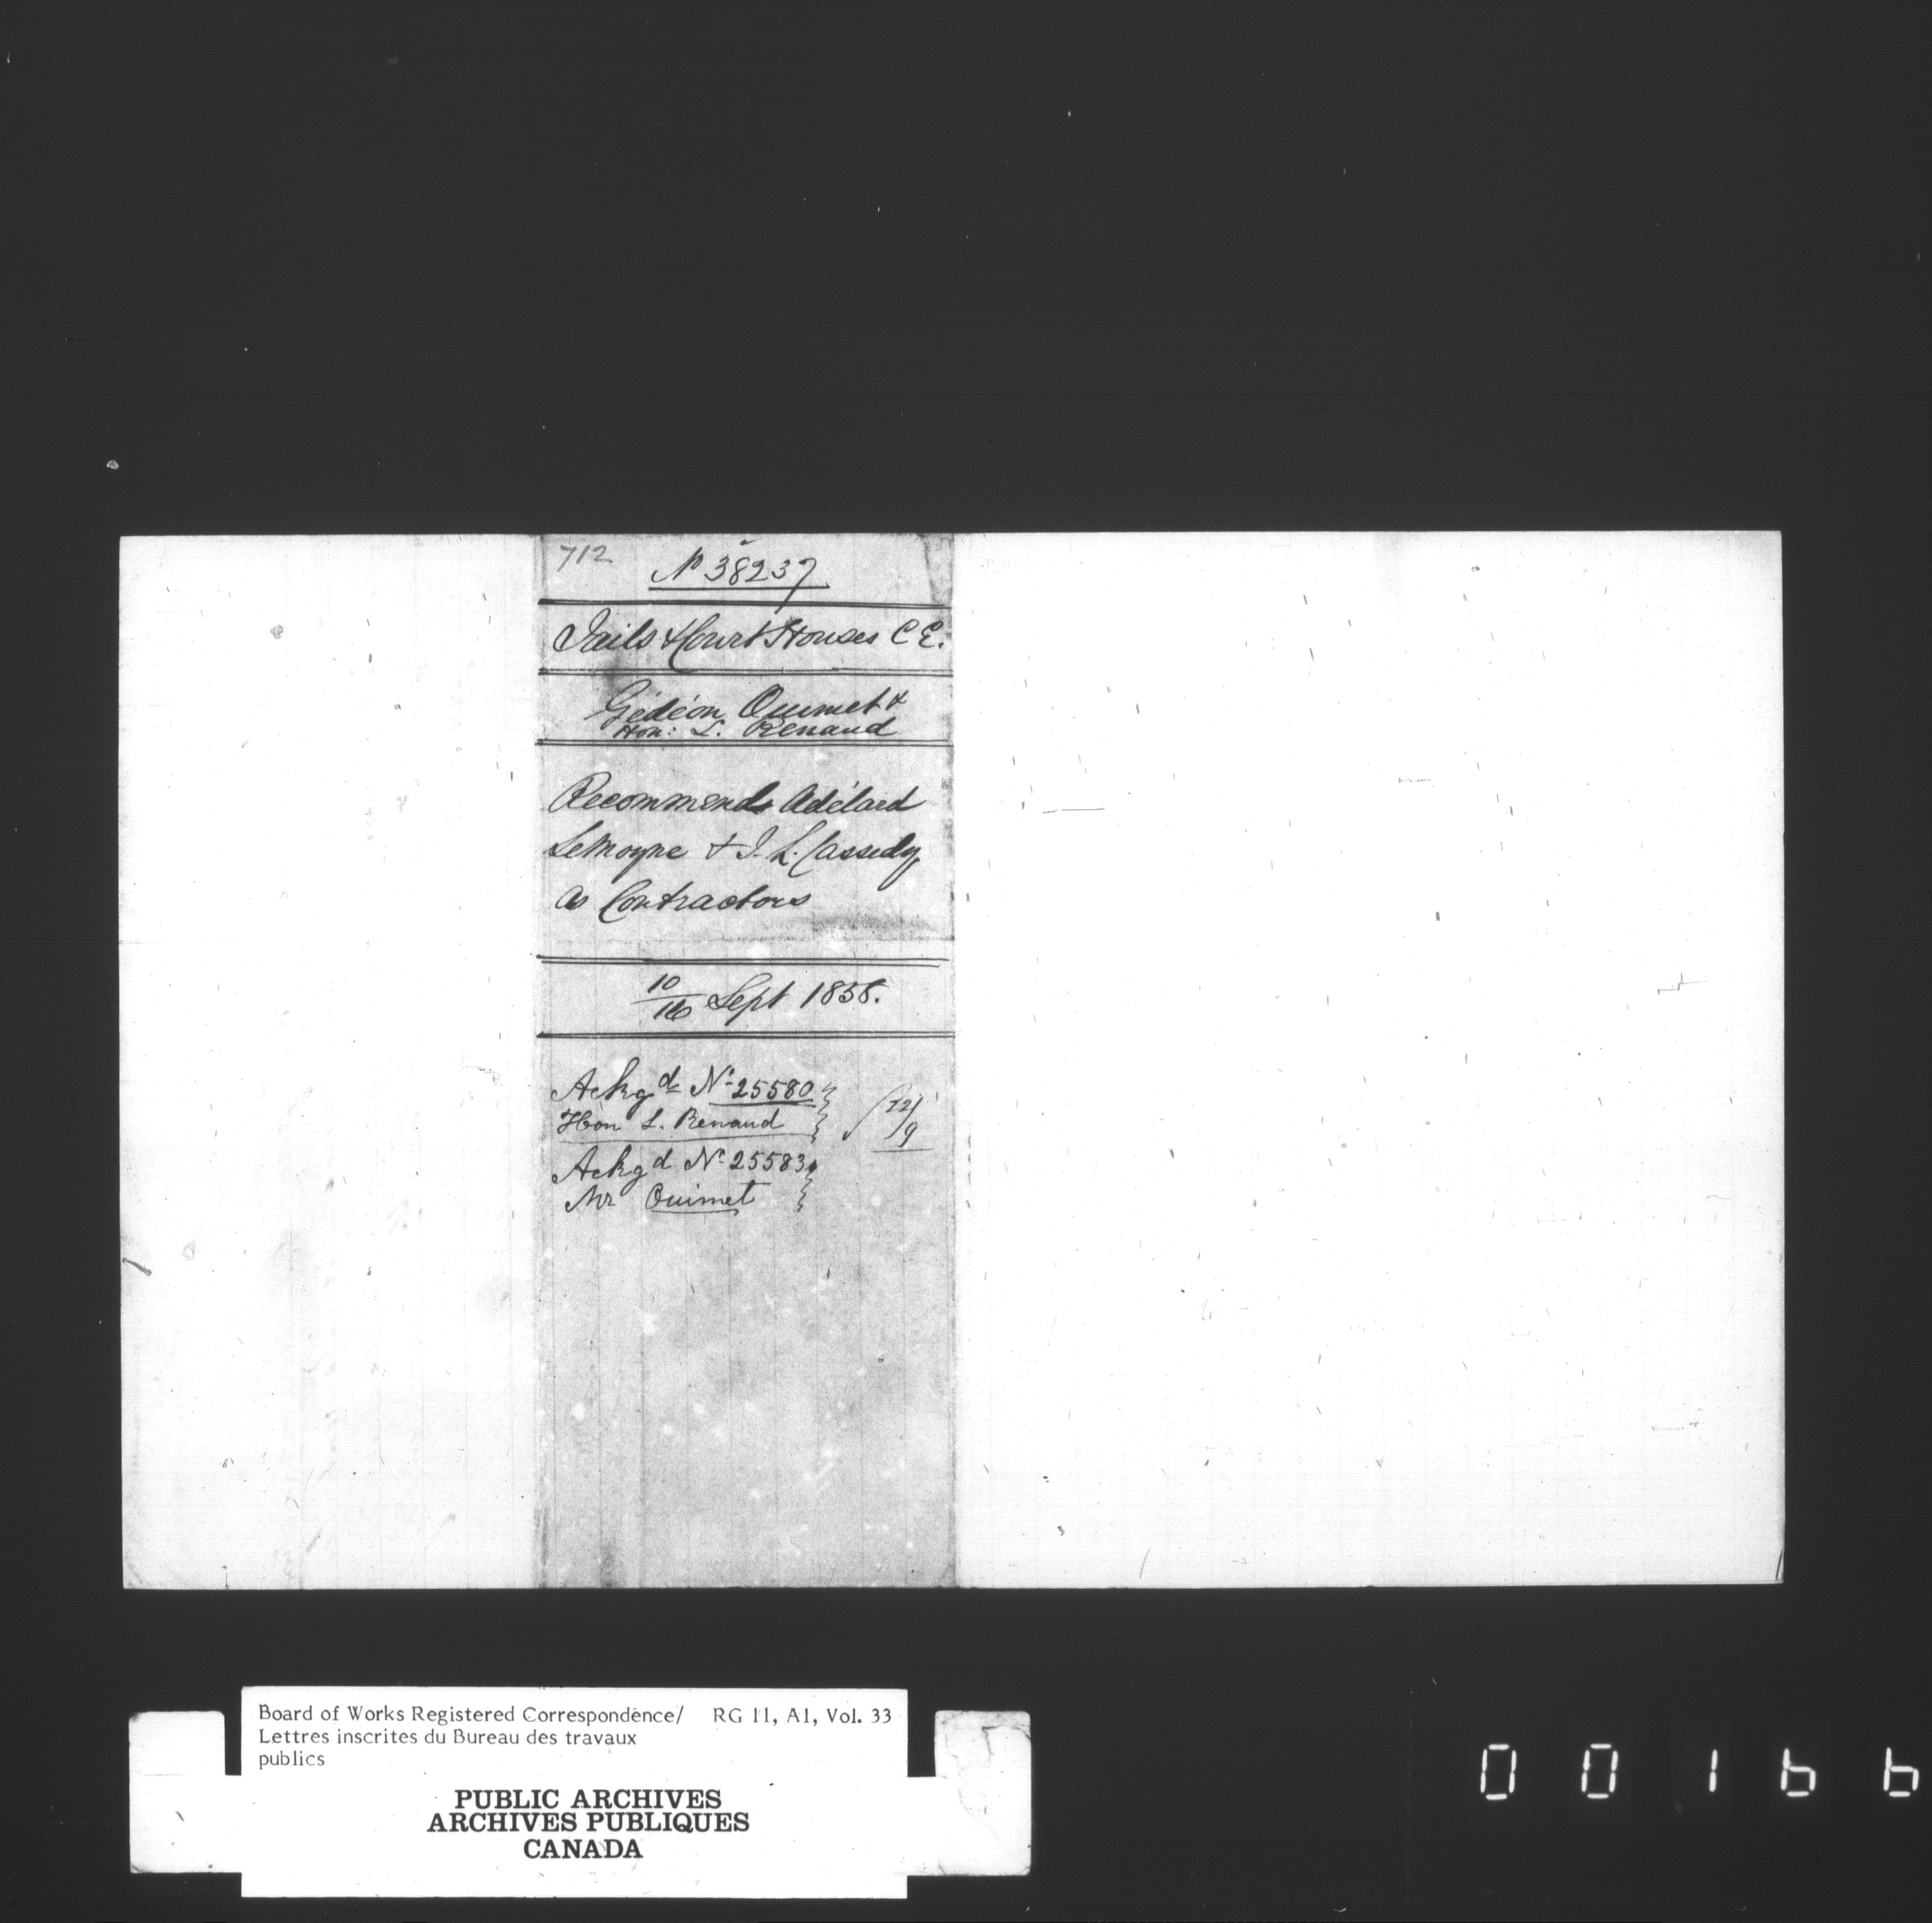 712
No 38237
Jails & Court Houses C E.
Gédéon Ouimet &
Hon: L. Renaud
Recommends Adélard
LeMoyne & J. L. Cassedy
as Contractors
10/16 Sept 1858.
Ackgd No 25580
Hon L. Renaud
22/9
Ackgd No 25583
Mr Ouimet
Board of Works Registered Correspondence/ RG 11, A1, Vol. 33
Lettres inscrites du Bureau des travaux
publics
PUBLIC ARCHIVES
ARCHIVES PUBLIQUES
CANADA
00166